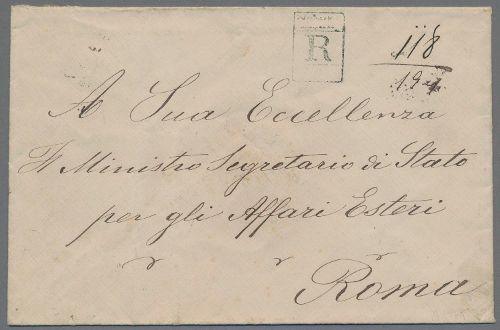 R
118
A Sua Eccellenza
Il Ministro Segretario di Stato
per gli Affari Esteri
Roma